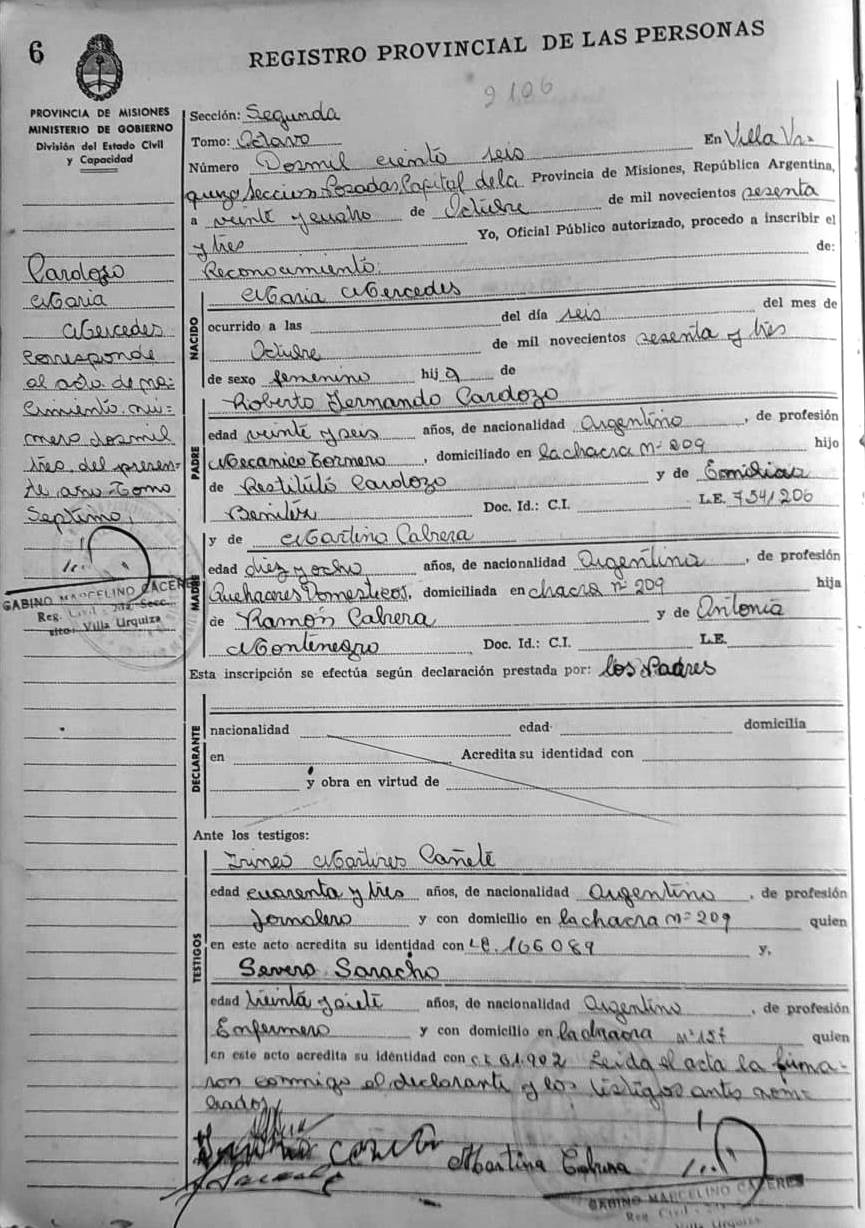 6
REGISTRO PROVINCIAL DE LAS PERSONAS
2106
PROVINCIA DE MISIONES
MINISTERIO DE GOBIERNO
División del Estado Civil
y Capacidad
Cardozo
Maria
Mercedes
corresponde
al acta de na=
cimiento nú=
mero dosmil
tres del presen=
te año Tomo
Septimo.
GABINO MARCELINO CACERES
Reg. Civil - 2da. Secc.
sito: Villa Urquiza
Sección: Segunda
Tomo: Octavo
En Villa Ur=
Número Dosmil ciento seis
quiza Seccion Posadas, Capital de la Provincia de Misiones, República Argentina,
a veinte y cuatro de Octubre de mil novecientos sesenta
y tres Yo, Oficial Público autorizado, procedo a inscribir el
Reconocimiento. de:
NACIDO
Maria Mercedes
ocurrido a las del día seis del mes de
Octubre de mil novecientos sesenta y tres
de sexo femenino hija de
PADRE
Roberto Fernando Cardozo
edad veinte y seis años, de nacionalidad Argentino, de profesión
Mecanico Tornero, domiciliado en la chacra Nº 209 hijo
de Restituto Cardozo y de
Benitez Doc. Id.: C.I. L.E. 754/206
MADRE
y de Martina Cabrera
edad diez y ocho años, de nacionalidad Argentina, de profesión
Quehaceres Domesticos, domiciliada en chacra nº 209 hija
de Ramón Cabrera y de Antonia
Montenegro Doc. Id.: C.I. L.E.
Esta inscripción se efectúa según declaración prestada por: los Padres
DECLARANTE
nacionalidad edad domicilia
en Acredita su identidad con
y obra en virtud de
Ante los testigos:
TESTIGOS
Irineo Martires Cañete
edad cuarenta y tres años, de nacionalidad Argentino, de profesión
Jornalero y con domicilio en la chacra Nº 209 quien
en este acto acredita su identidad con LE. 166089 y,
Severo Saracho
edad treinta y siete años, de nacionalidad Argentino, de profesión
Enfermero y con domicilio en la chacra Nº 157 quien
en este acto acredita su identidad con C.I. 61.902 Leida el acta la firma=
ron conmigo el declarante y los testigos antes nom=
brados
Martina Cabrera
GABINO MARCELINO CACERES
Reg. Civil
Villa Urquiza